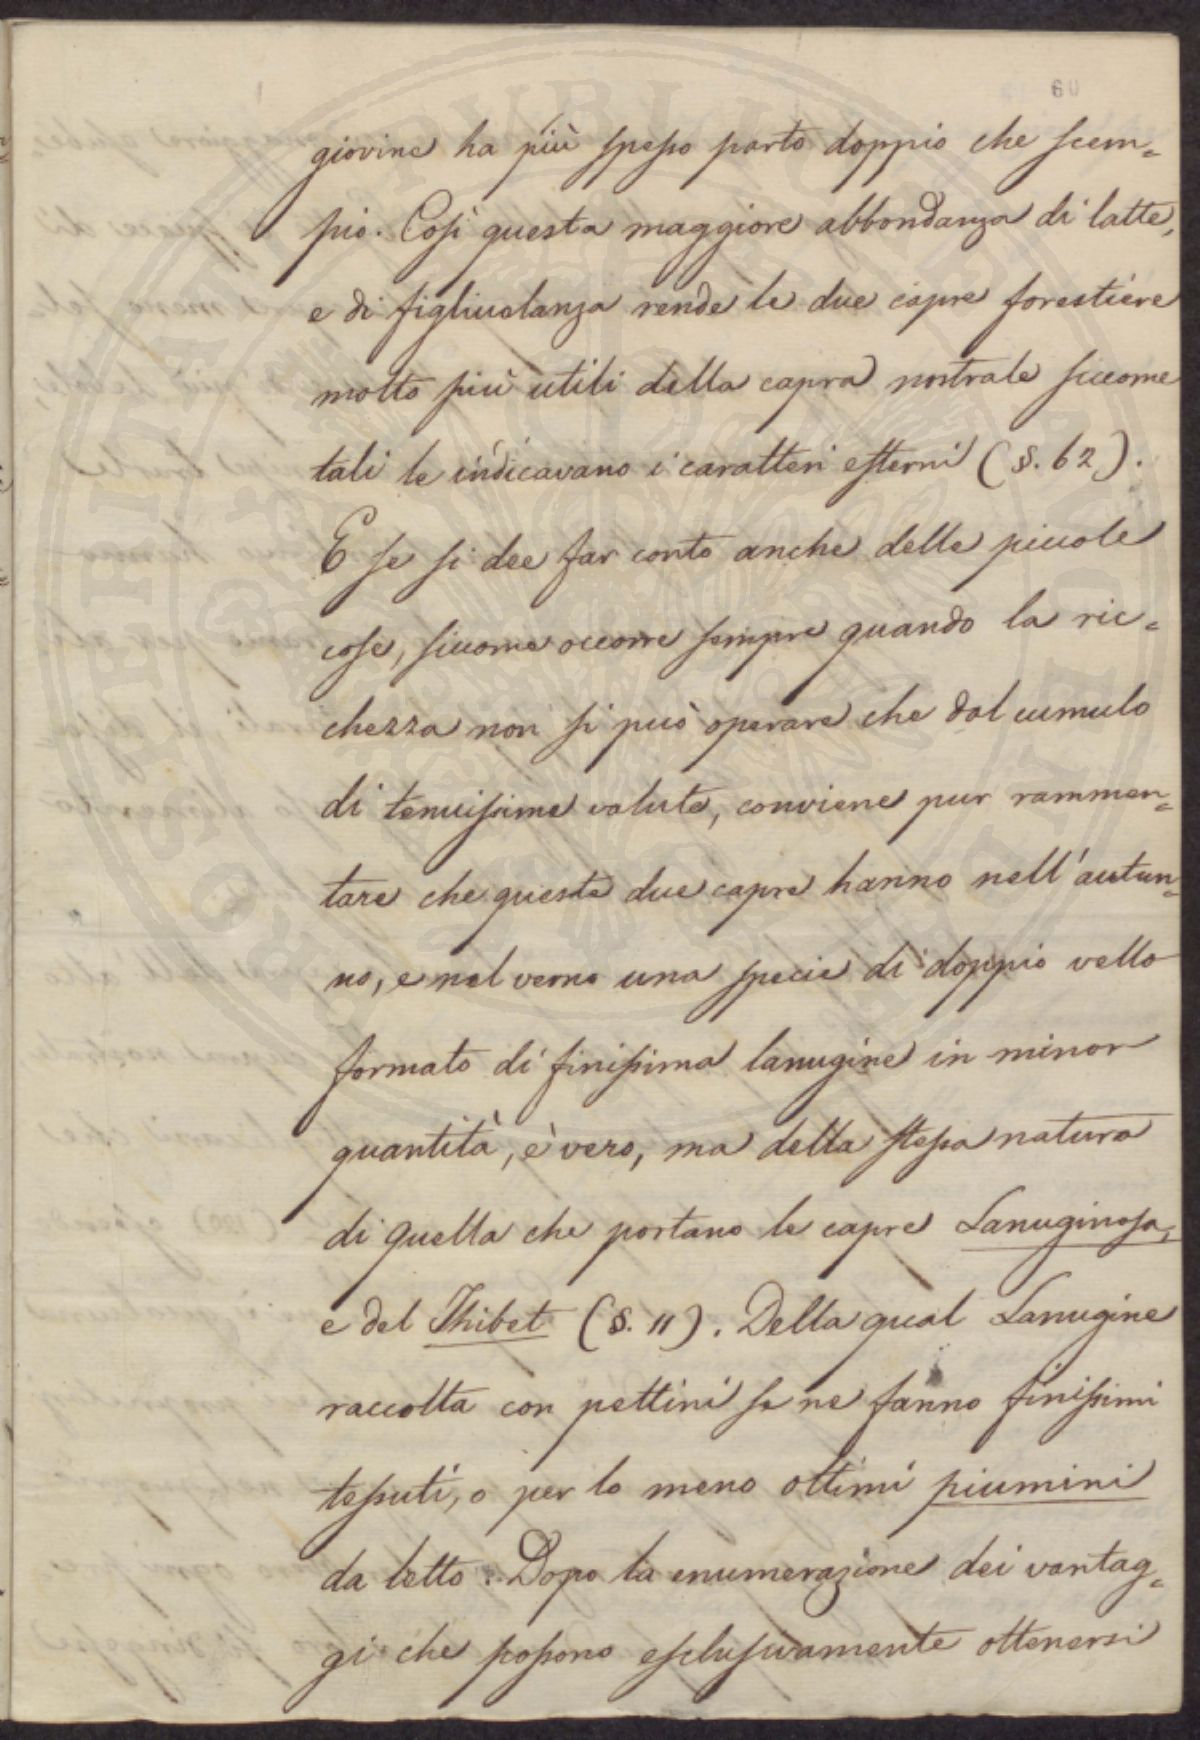 60
giovine ha più spesso parto doppio che scem=
pio. Così questa maggiore abbondanza di latte,
e di figliuolanza rende le due capre forestiere
molto più utili della capra nostrale siccome
tali le indicavano i caratteri esterni (§. 62).
E se si dee far conto anche delle piccole
cose, siccome occorre sempre quando la ric=
chezza non si può operare che dal cumulo
di tenuissime valute, conviene pur rammen=
tare che queste due capre hanno nell'autun=
no, e nel verno una specie di doppio vello
formato di finissima lanugine in minor
quantità, è vero, ma della stessa natura
di quella che portano le capre Lanuginosa,
e del Thibet (§. 11). Della qual Lanugine
raccolta con pettini se ne fanno finissimi
tessuti, o per lo meno ottimi piumini
da letto. Dopo la enumerazione dei vantag=
gi che possono esclusivamente ottenersi